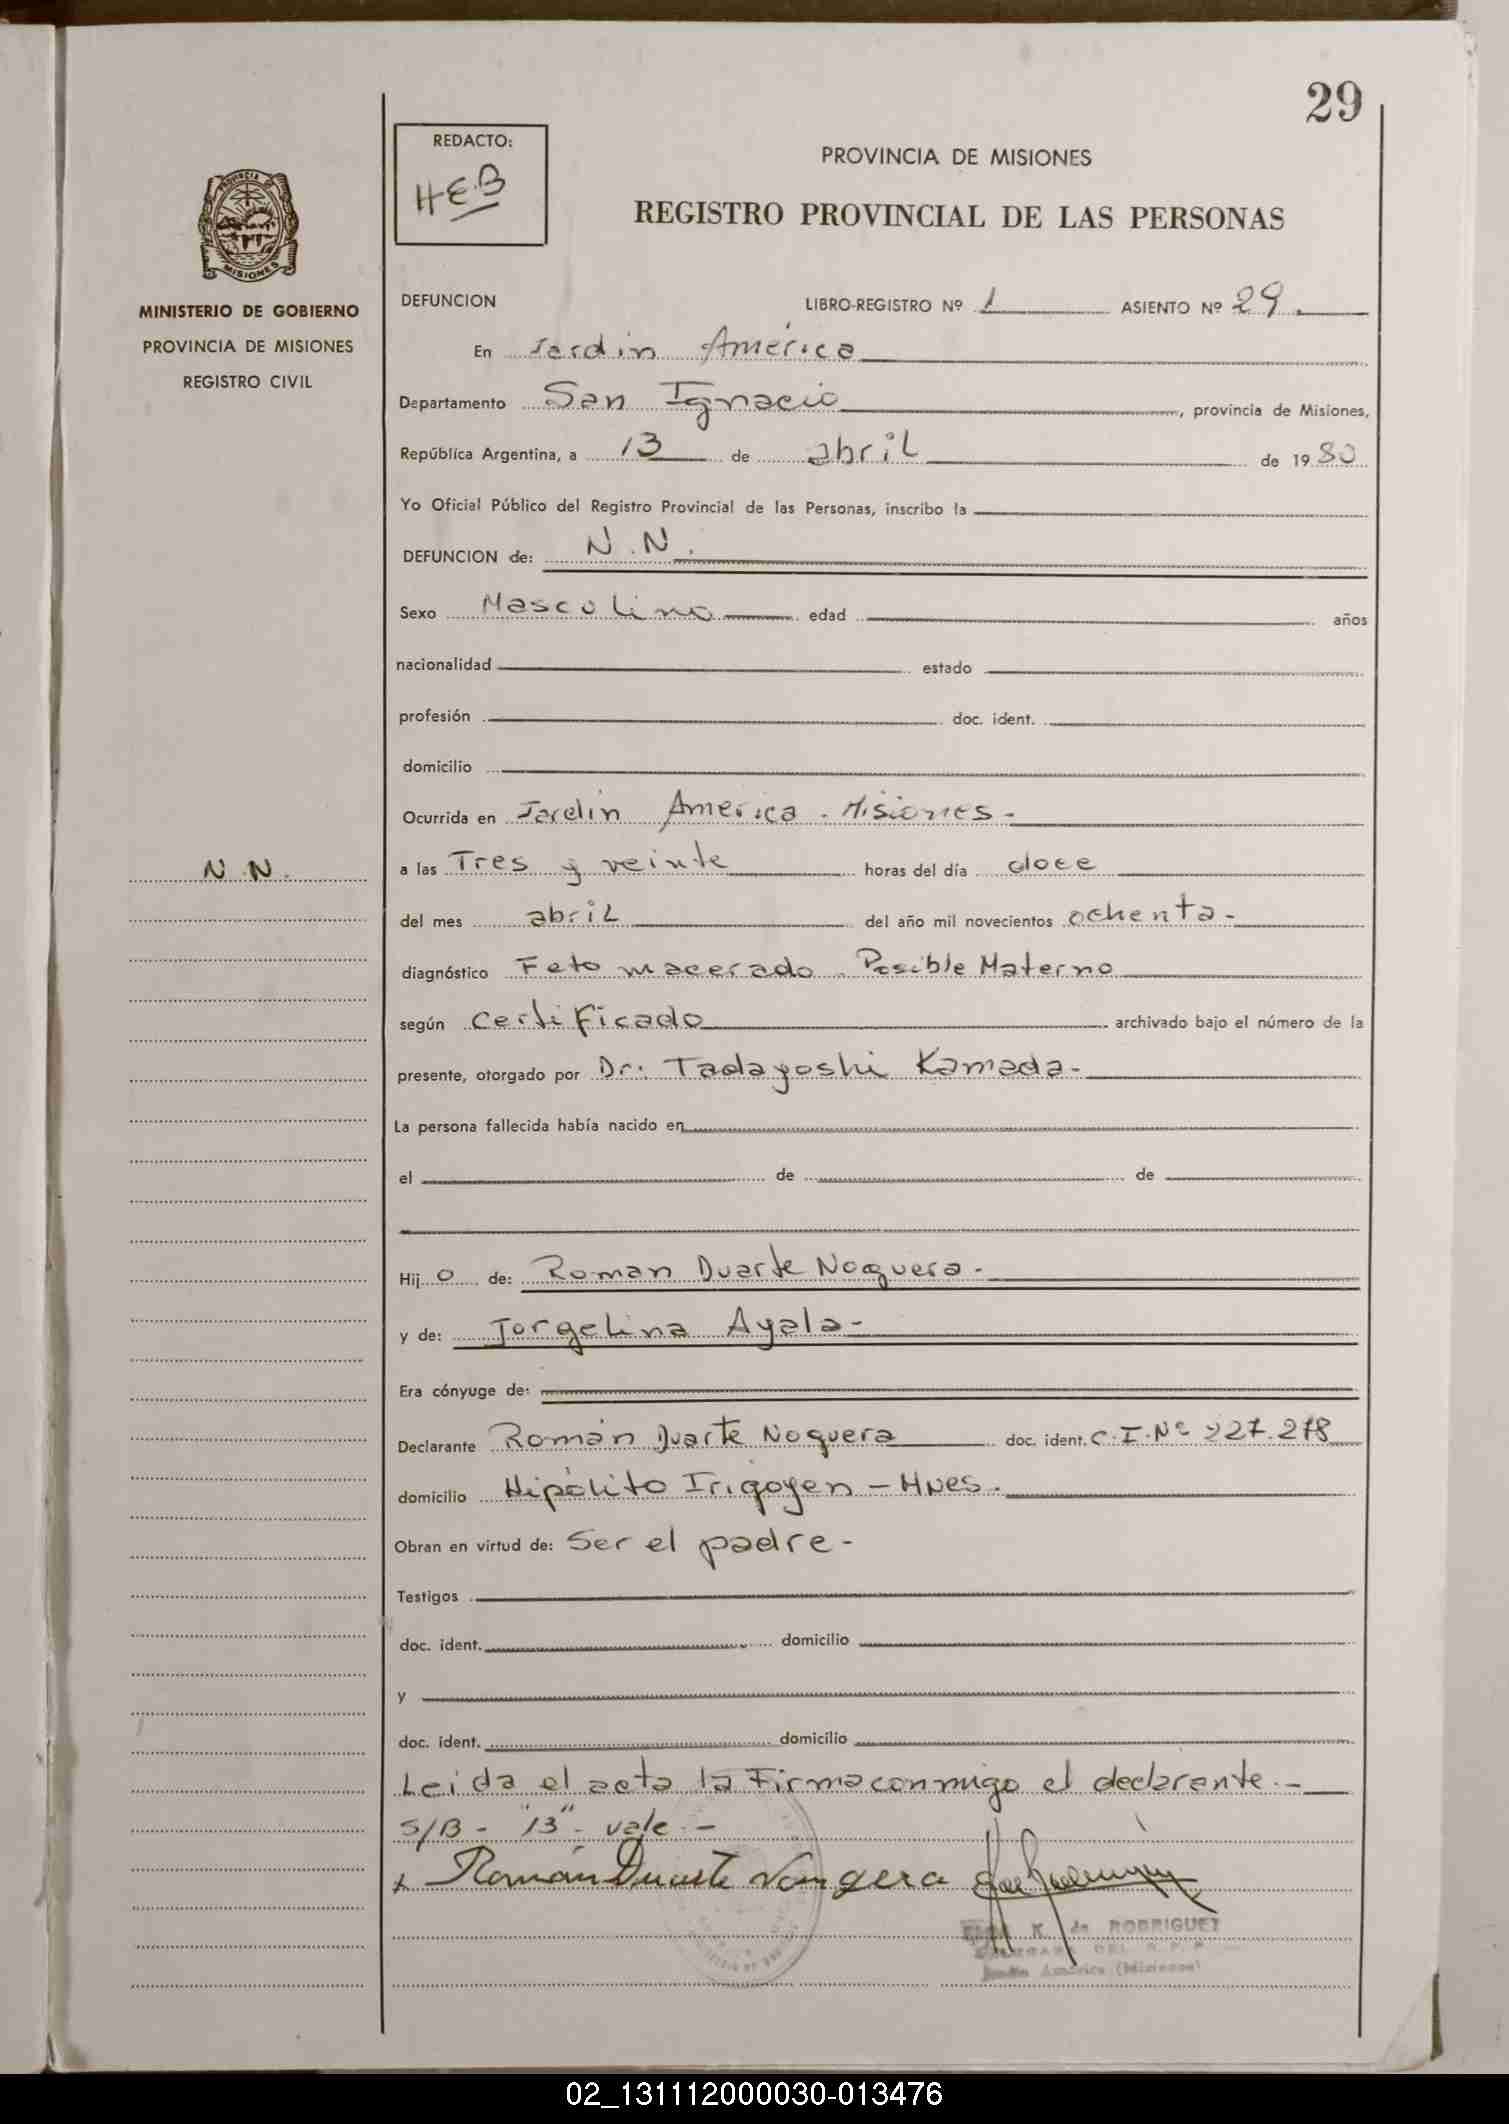 29
REDACTO:
HEB
PROVINCIA DE MISIONES
REGISTRO PROVINCIAL DE LAS PERSONAS
PROVINCIA DE
MISIONES
MINISTERIO DE GOBIERNO
PROVINCIA DE MISIONES
REGISTRO CIVIL
DEFUNCION LIBRO-REGISTRO Nº 1 ASIENTO Nº 29.
En Jardin América
Departamento San Ignacio, provincia de Misiones,
República Argentina, a 13 de abril de 1980
Yo Oficial Público del Registro Provincial de las Personas, inscribo la
DEFUNCION de: N.N.
Sexo Masculino edad años
nacionalidad estado
profesión doc. ident.
domicilio
Ocurrida en Jardin America. Misiones-
N.N.
a las Tres y veinte horas del día doce
del mes abril del año mil novecientos ochenta-
diagnóstico Feto macerado. Posible Materno
según certificado archivado bajo el número de la
presente, otorgado por Dr. Tadayoshi Kamada-
La persona fallecida había nacido en
el de de
Hijo de: Roman Duarte Noguera-
y de: Jorgelina Ayala-
Era cónyuge de:
Declarante Román Duarte Noguera doc. ident. C.I.Nº 227.278
domicilio Hipólito Irigoyen - Mnes.
Obran en virtud de: Ser el padre-
Testigos
doc. ident. domicilio
y
doc. ident. domicilio
Leida el acta la Firma conmigo el declarante.-
S/B- "13"- vale.-
x Román Duarte
K. de RODRIGUEZ
DEL R.P.P.
Jardín América (Misiones)
02_131112000030-013476